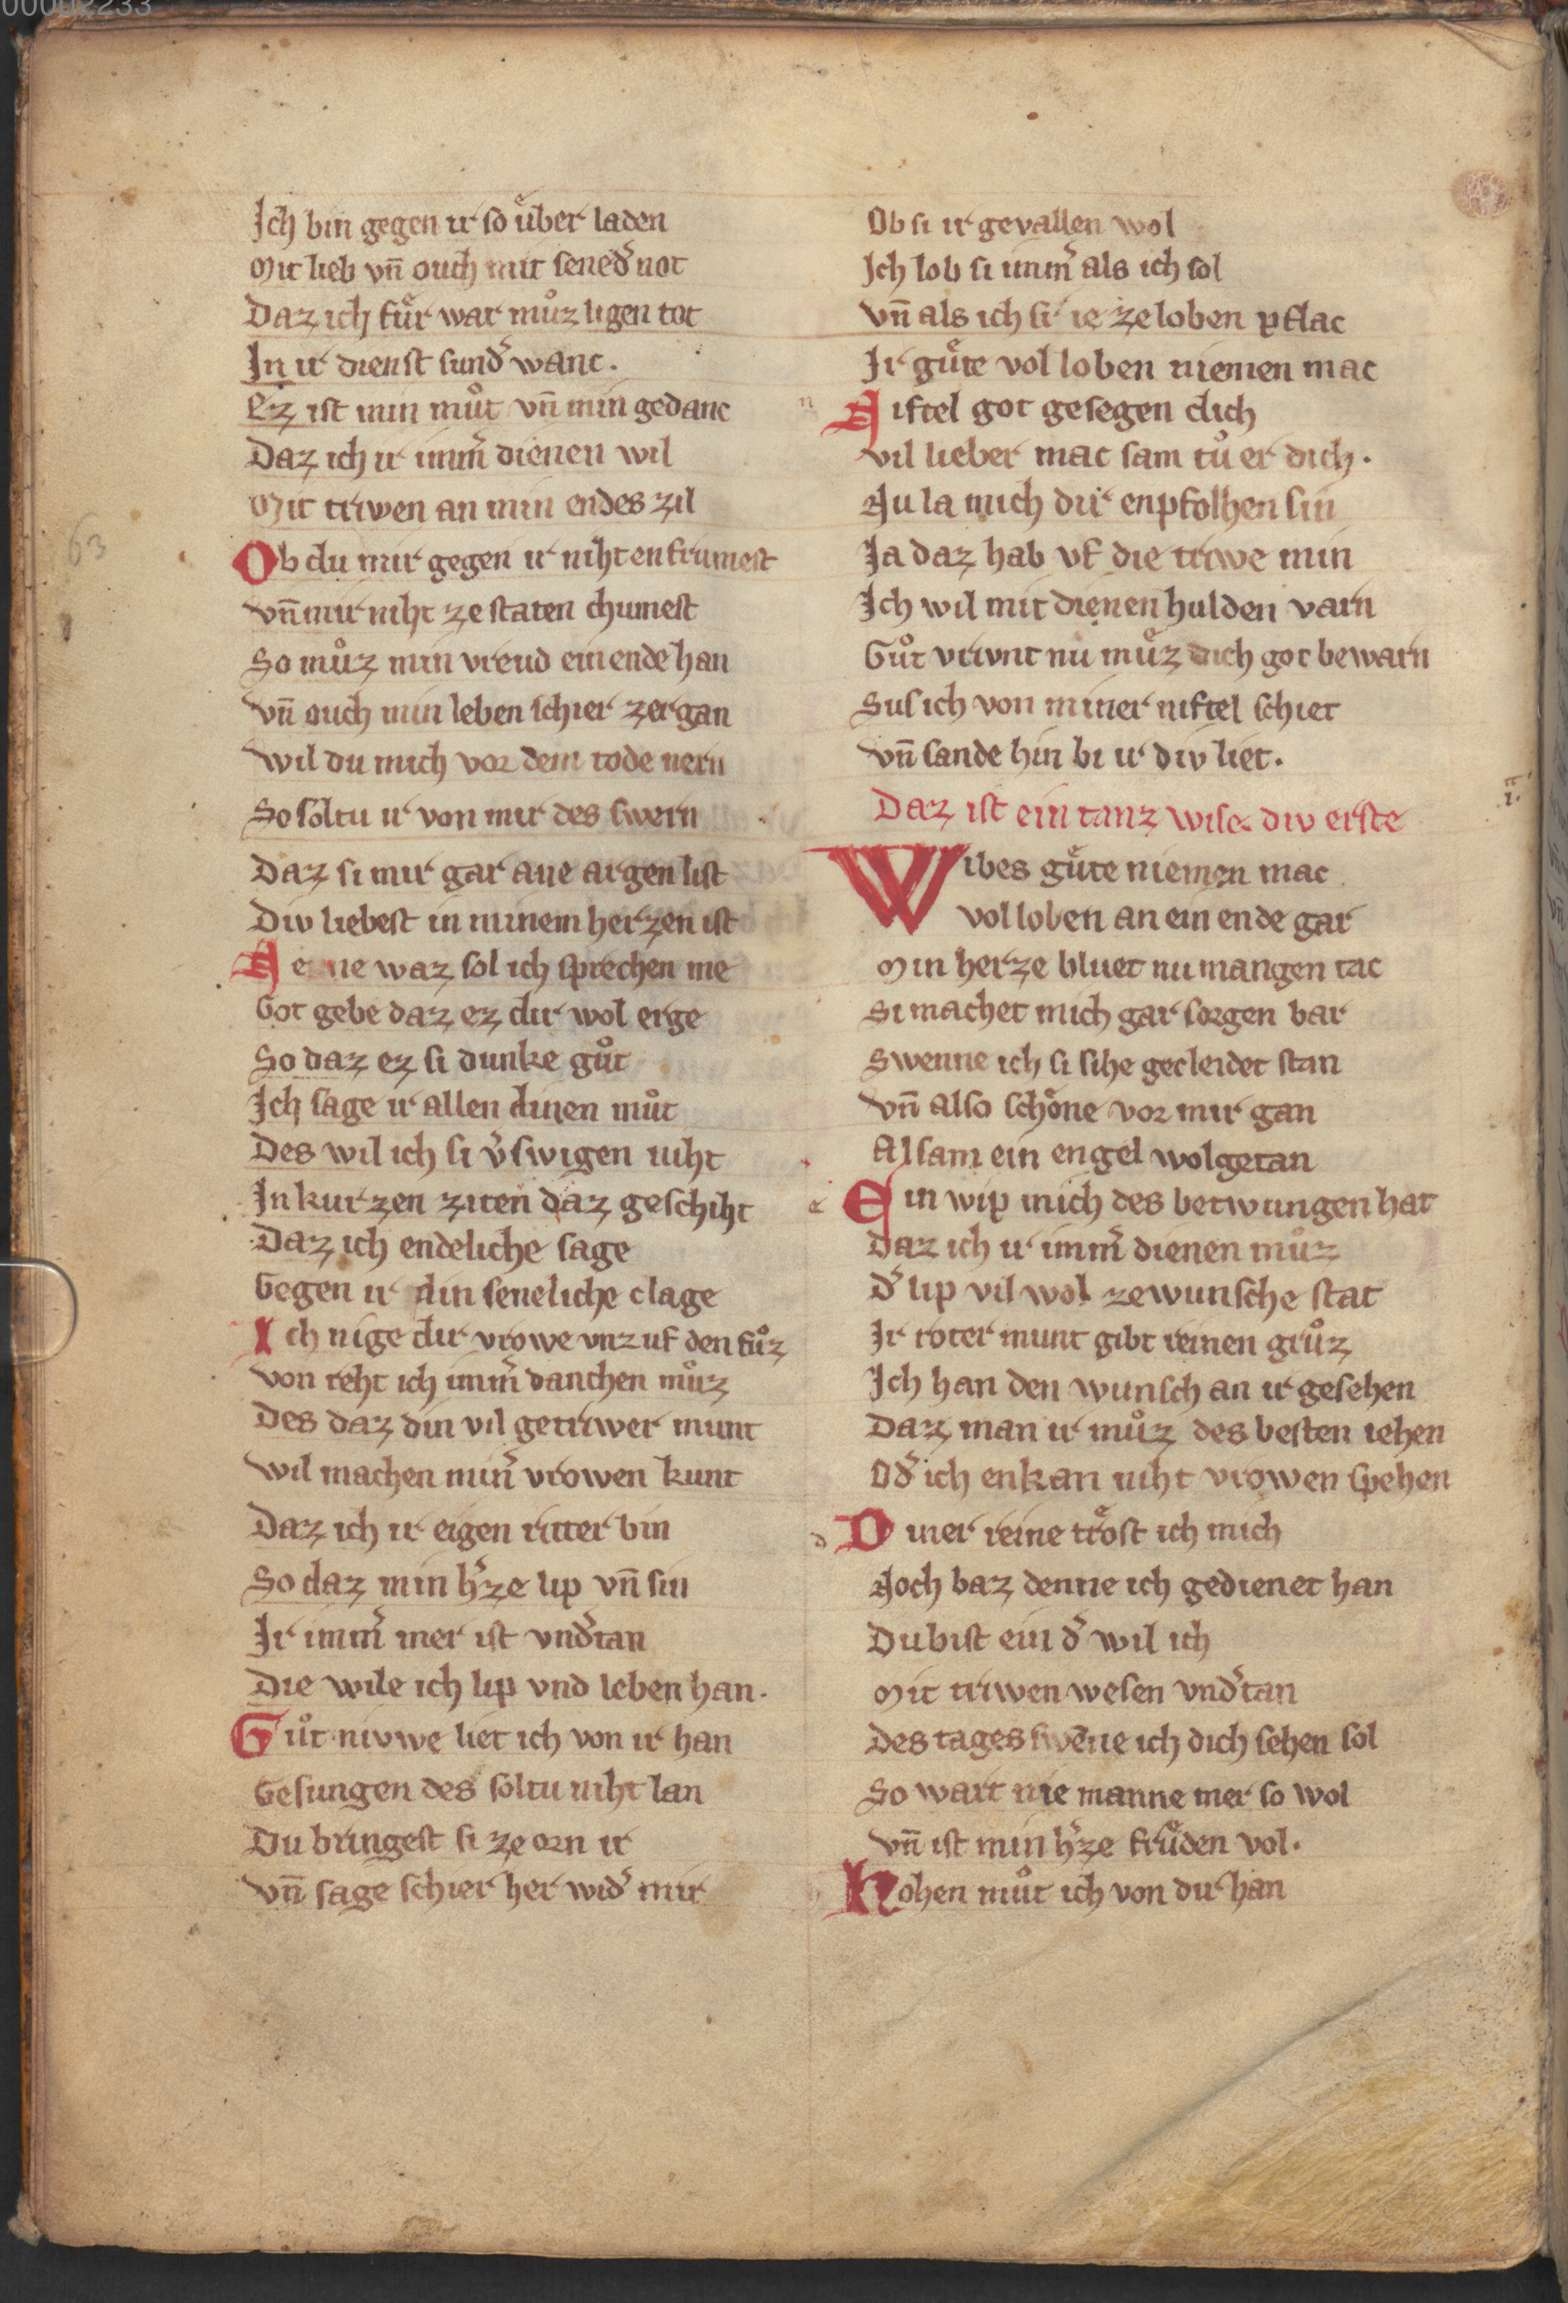 00002233
Ich bin gegen ir so uͤber laden
Mit lieb vn̄ ouch mit sened͛ not
Daz ich fuͤr war muͦz ligen tot
In ir dienst sund͛ wanc.
Ez ist min muͦt vn̄ min gedanc
Daz ich ir imm͛ dienen wil
Mit triwen an min endes zil
63
Ob du mir gegen ir niht enfrumest
vn̄ mir niht ze staten chumest
So muͦz min vreud ein ende han
vn̄ ouch min leben schier zergan
wil du mich vor dem tode nern
So soltu ir von mir des swern
Daz si mir gar ane argen list
Div liebest in minem herzen ist
Neue waz sol ich sprechen me
Got gebe daz ez dir wol erge
So daz ez si dunke guͦt
Ich sage ir allen dinen muͦt
Des wil ich si v͛swigen niht
In kurzen ziten daz geschiht
Daz ich endeliche sage
Gegen ir din seneliche clage
Ich nige dir vrowe vnz uf den fuͦz
von reht ich imm͛ danchen muͦz
Des daz din vil getriwer munt
wil machen min͛ vrowen kunt
Daz ich ir eigen ritter bin
So daz min h͛ze lip vn̄ sin
Ir imm͛ mer ist vnd͛tan
Die wile ich lip vnd leben han.
Guͦt nivwe liet ich von ir han
Gesungen des soltu niht lan
Du bringest si ze orn ir
vn̄ sage schier her wid͛ mir
Ob si ir gevallen wol
Ich lob si imm͛ als ich sol
vn̄ als ich si ie ze loben pflac
Ir guͤte vol loben niemen mac
n
Niftel got gesegen dich
vil lieber mac sam tuͦ er dich.
Nu la mich dir enpfolhen sin
Ja daz hab vf die triwe min
Ich wil mit dienen hulden varn
Guͦt vrivnt nu muͤz dich got bewarn
Sus ich von miner niftel schiet
vn̄ sande hin bi ir div liet.
Daz ist ein tanz wise. div erste
Wibes guͤte niemen mac
vol loben an ein ende gar
Min herze bluet nu mangen tac
Si machet mich gar sorgen bar
Swenne ich si sihe gecleidet stan
vn̄ also schoͤne vor mir gan
Alsam ein engel wolgetan
e
Ein wip mich des betwungen hat
daz ich ir imm͛ dienen muͦz
d͛ lip vil wol ze wunsche stat
Ir roter munt gibt reinen gruͦz
Ich han den wunsch an ir gesehen
Daz man ir muͦz des besten iehen
Od͛ ich enkan niht vrowen spehen
d
Diner reine troͤst ich mich
Noch baz denne ich gedienet han
Du bist ein d͛ wil ich
Mit triwen wesen vnd͛tan
Des tages swēne ich dich sehen sol
So wart nie manne mer so wol
vn̄ ist min h͛ze fruͤden vol.
Hohen muͦt ich von dir han